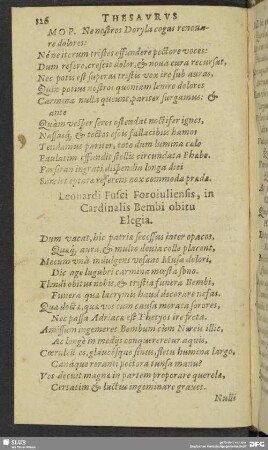 126 THESAVRVS
MOP. Ne nostros Doryla cogas renoua-
re dolores:
Né ue iterum tristes effundere pectore voces:
Dum refero, crescit dolor, & noua cura recursat.
Nec potis est superas tristis vox ire sub auras,
Quin potius nostros quoniam lenire dolores
Carmina nulla queunt, pariter surgamus: &
ante
Quàm vesper seros ostendat noctifer ignes,
Nassasq́, & tectos escis fallacibus hamos
Tendamus pariter, toto dum lumina cælo
Paulatim effundit stellis circundata Phœbe.
Forsitan ingrati dispendia longa diei
Sorciet optata referens nox commoda præda.
Leonardi Fusci Foroiuliensis, in
Cardinalis Bembi obitu
Elegia.
Dum vacat, hic patriæ secessus inter opacos,
Quáq́, aura, & multo deuia colle placent,
Mecum vnà indulgens vesane Musa dolori,
Dic age lugubri carmina mœsta sono.
Flendi obitus nobis, & tristia funera Bembi,
Funera quæ lacrymis haud decorare nefas.
Quæ docta, qua vos tum causa morata sorores,
Nec passa Adriaca est Thetyos ire freta.
Amissum ingemeret Bembum cùm Nereus illic,
Ac longè in medijs conquereretur aquis,
Cœrulei et, glaucósque sinus, fletu humina largo,
Canáque roranti pectora tunsa manu?
Vos decuit magnæ in partem properare querelæ,
Certatim & luctus ingeminare graues.
Nulli
SLUB
DFG